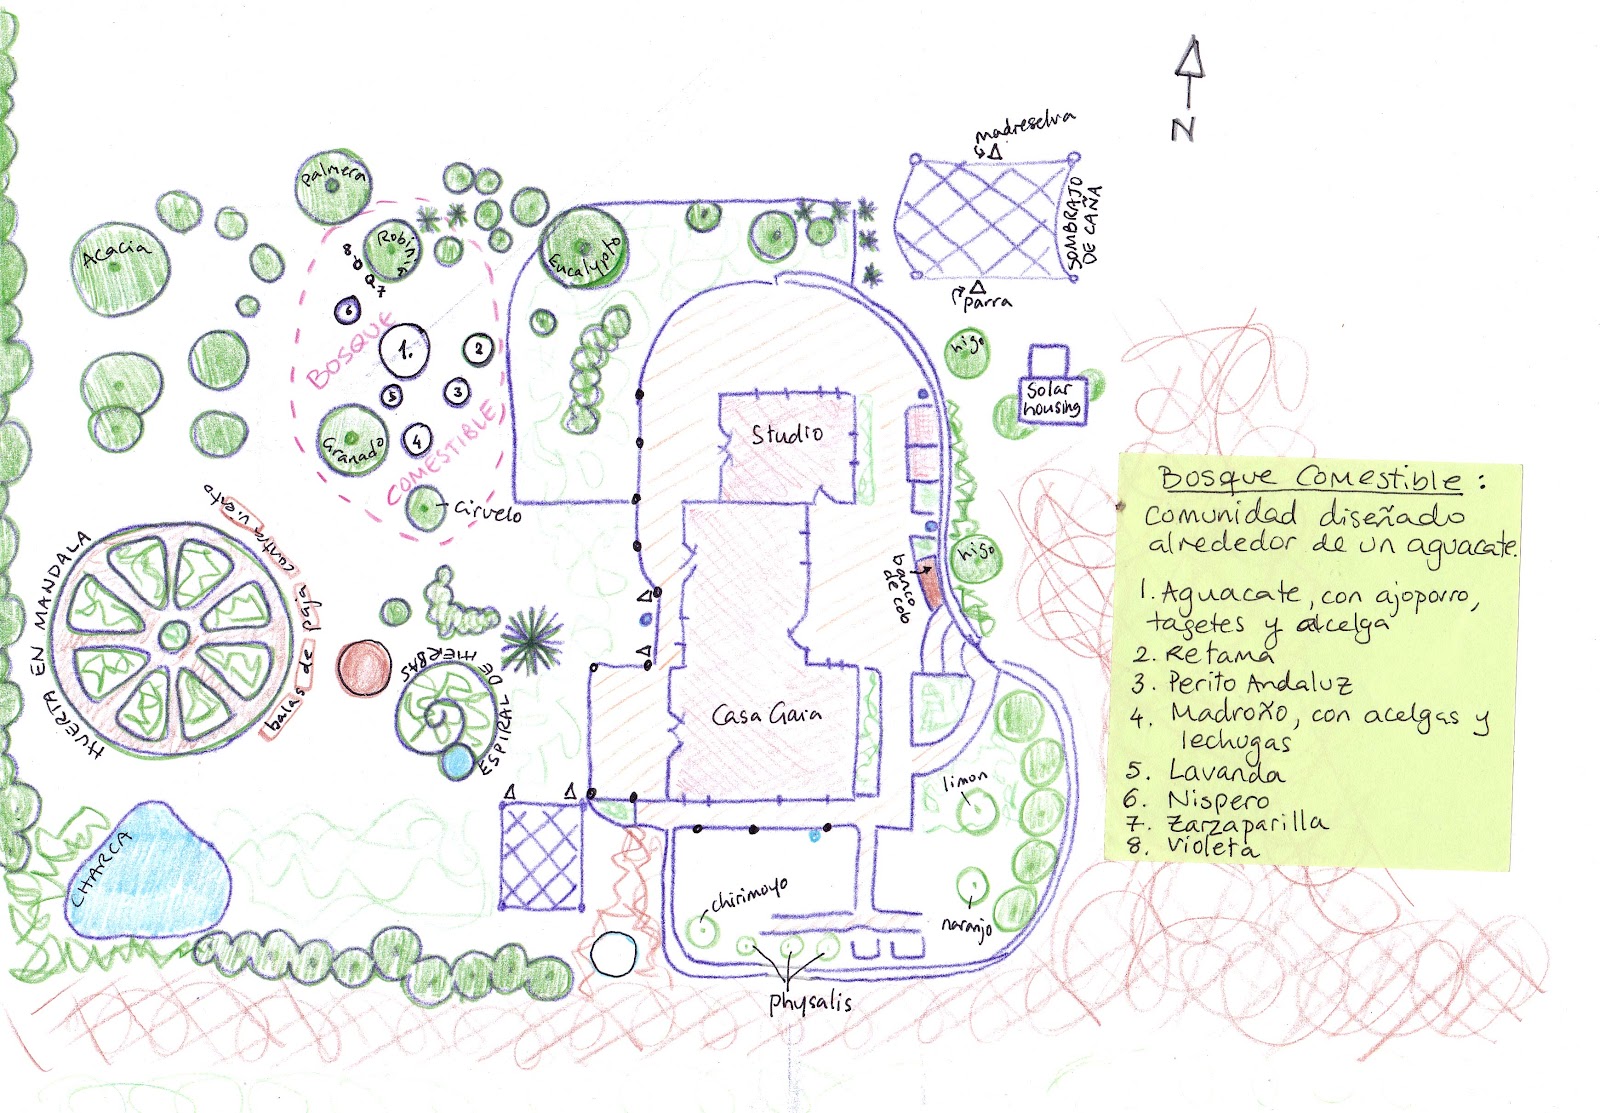 N
madreselva
SOMBRAJO
DE CAÑA
parra
palmera
Acacia
Robinia
Eucalypto
8
7
6
1.
2
3
5
4
BOSQUE
COMESTIBLE
Granado
Cirvelo
higo
Solar
housing
Studio
higo
banco
de cob
Casa Gaia
HUERTA EN MANDALA
balas de paja contra viento
ESPIRAL DE HIERBAS
CHARCA
limon
naranjo
chirimoyo
physalis
Bosque Comestible :
comunidad diseñado
alrededor de un aguacate.
1. Aguacate, con ajoporro,
tagetes y alcelga
2. Retama
3. Perito Andaluz
4. Madroño, con acelgas y
lechugas
5. Lavanda
6. Nispero
7. Zarzaparilla
8. Violeta